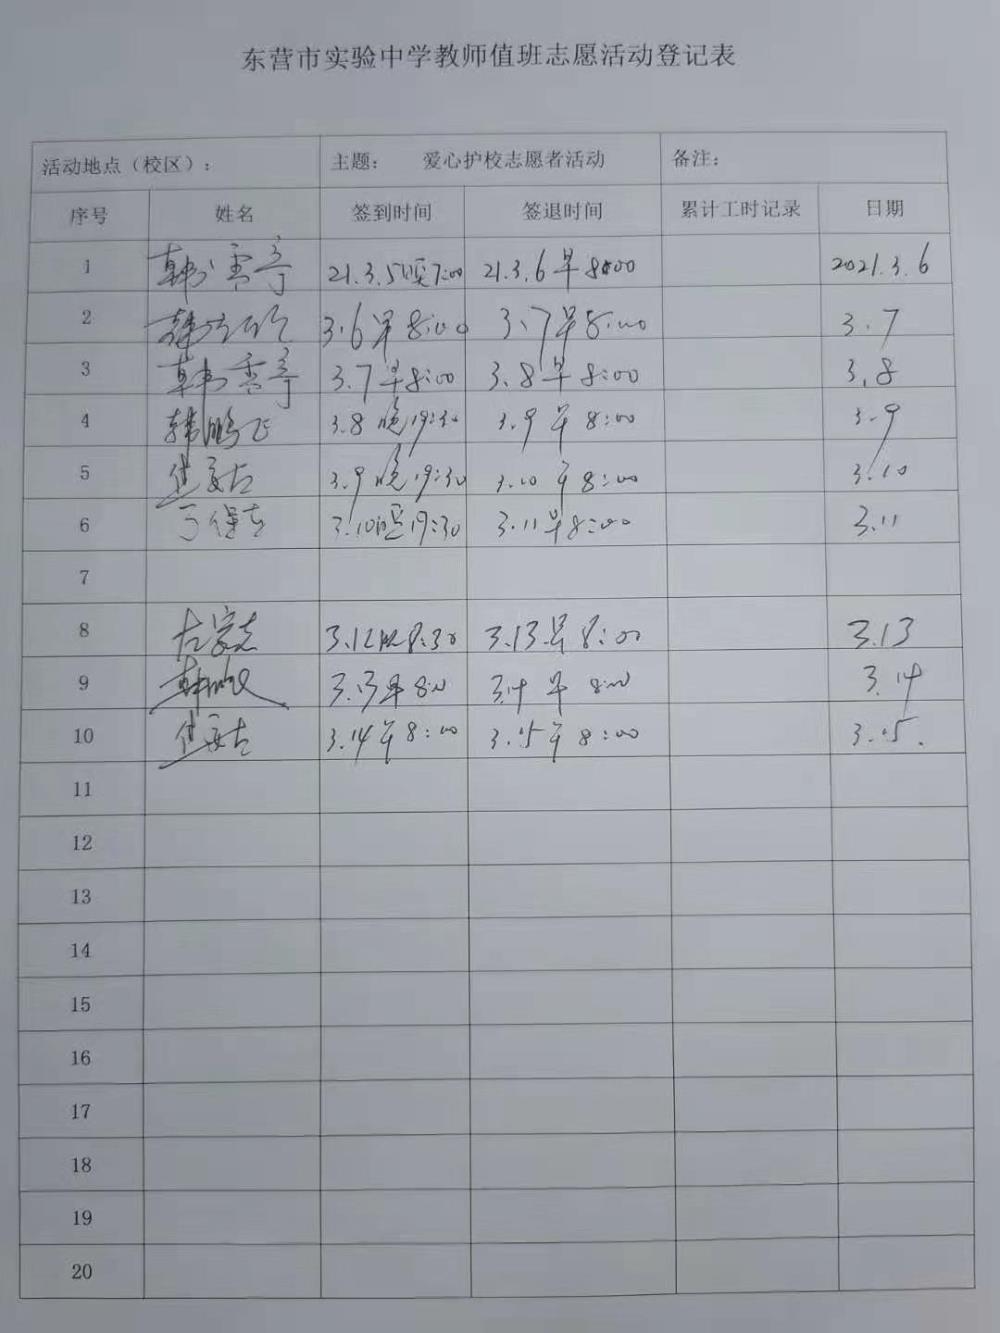 东营市实验中学教师值班志愿活动登记表
活动地点（校区）： 主题： 爱心护校志愿者活动 备注：
序号 姓名 签到时间 签退时间 累计工时记录 日期
1 韩雪亭 21.3.5晚7:00 21.3.6早8:00 2021.3.6
2 3.6早8:00 3.7早8:00 3.7
3 韩雪亭 3.7早8:00 3.8早8:00 3.8
4 韩鹏飞 3.8晚19:30 3.9早8:00 3.9
5 3.9晚19:30 3.10早8:00 3.10
6 3.10晚19:30 3.11早8:00 3.11
7
8 3.12晚8:30 3.13早8:00 3.13
9 3.13早8:00 3.14早8:00 3.14
10 3.14早8:00 3.15早8:00 3.15.
11
12
13
14
15
16
17
18
19
20